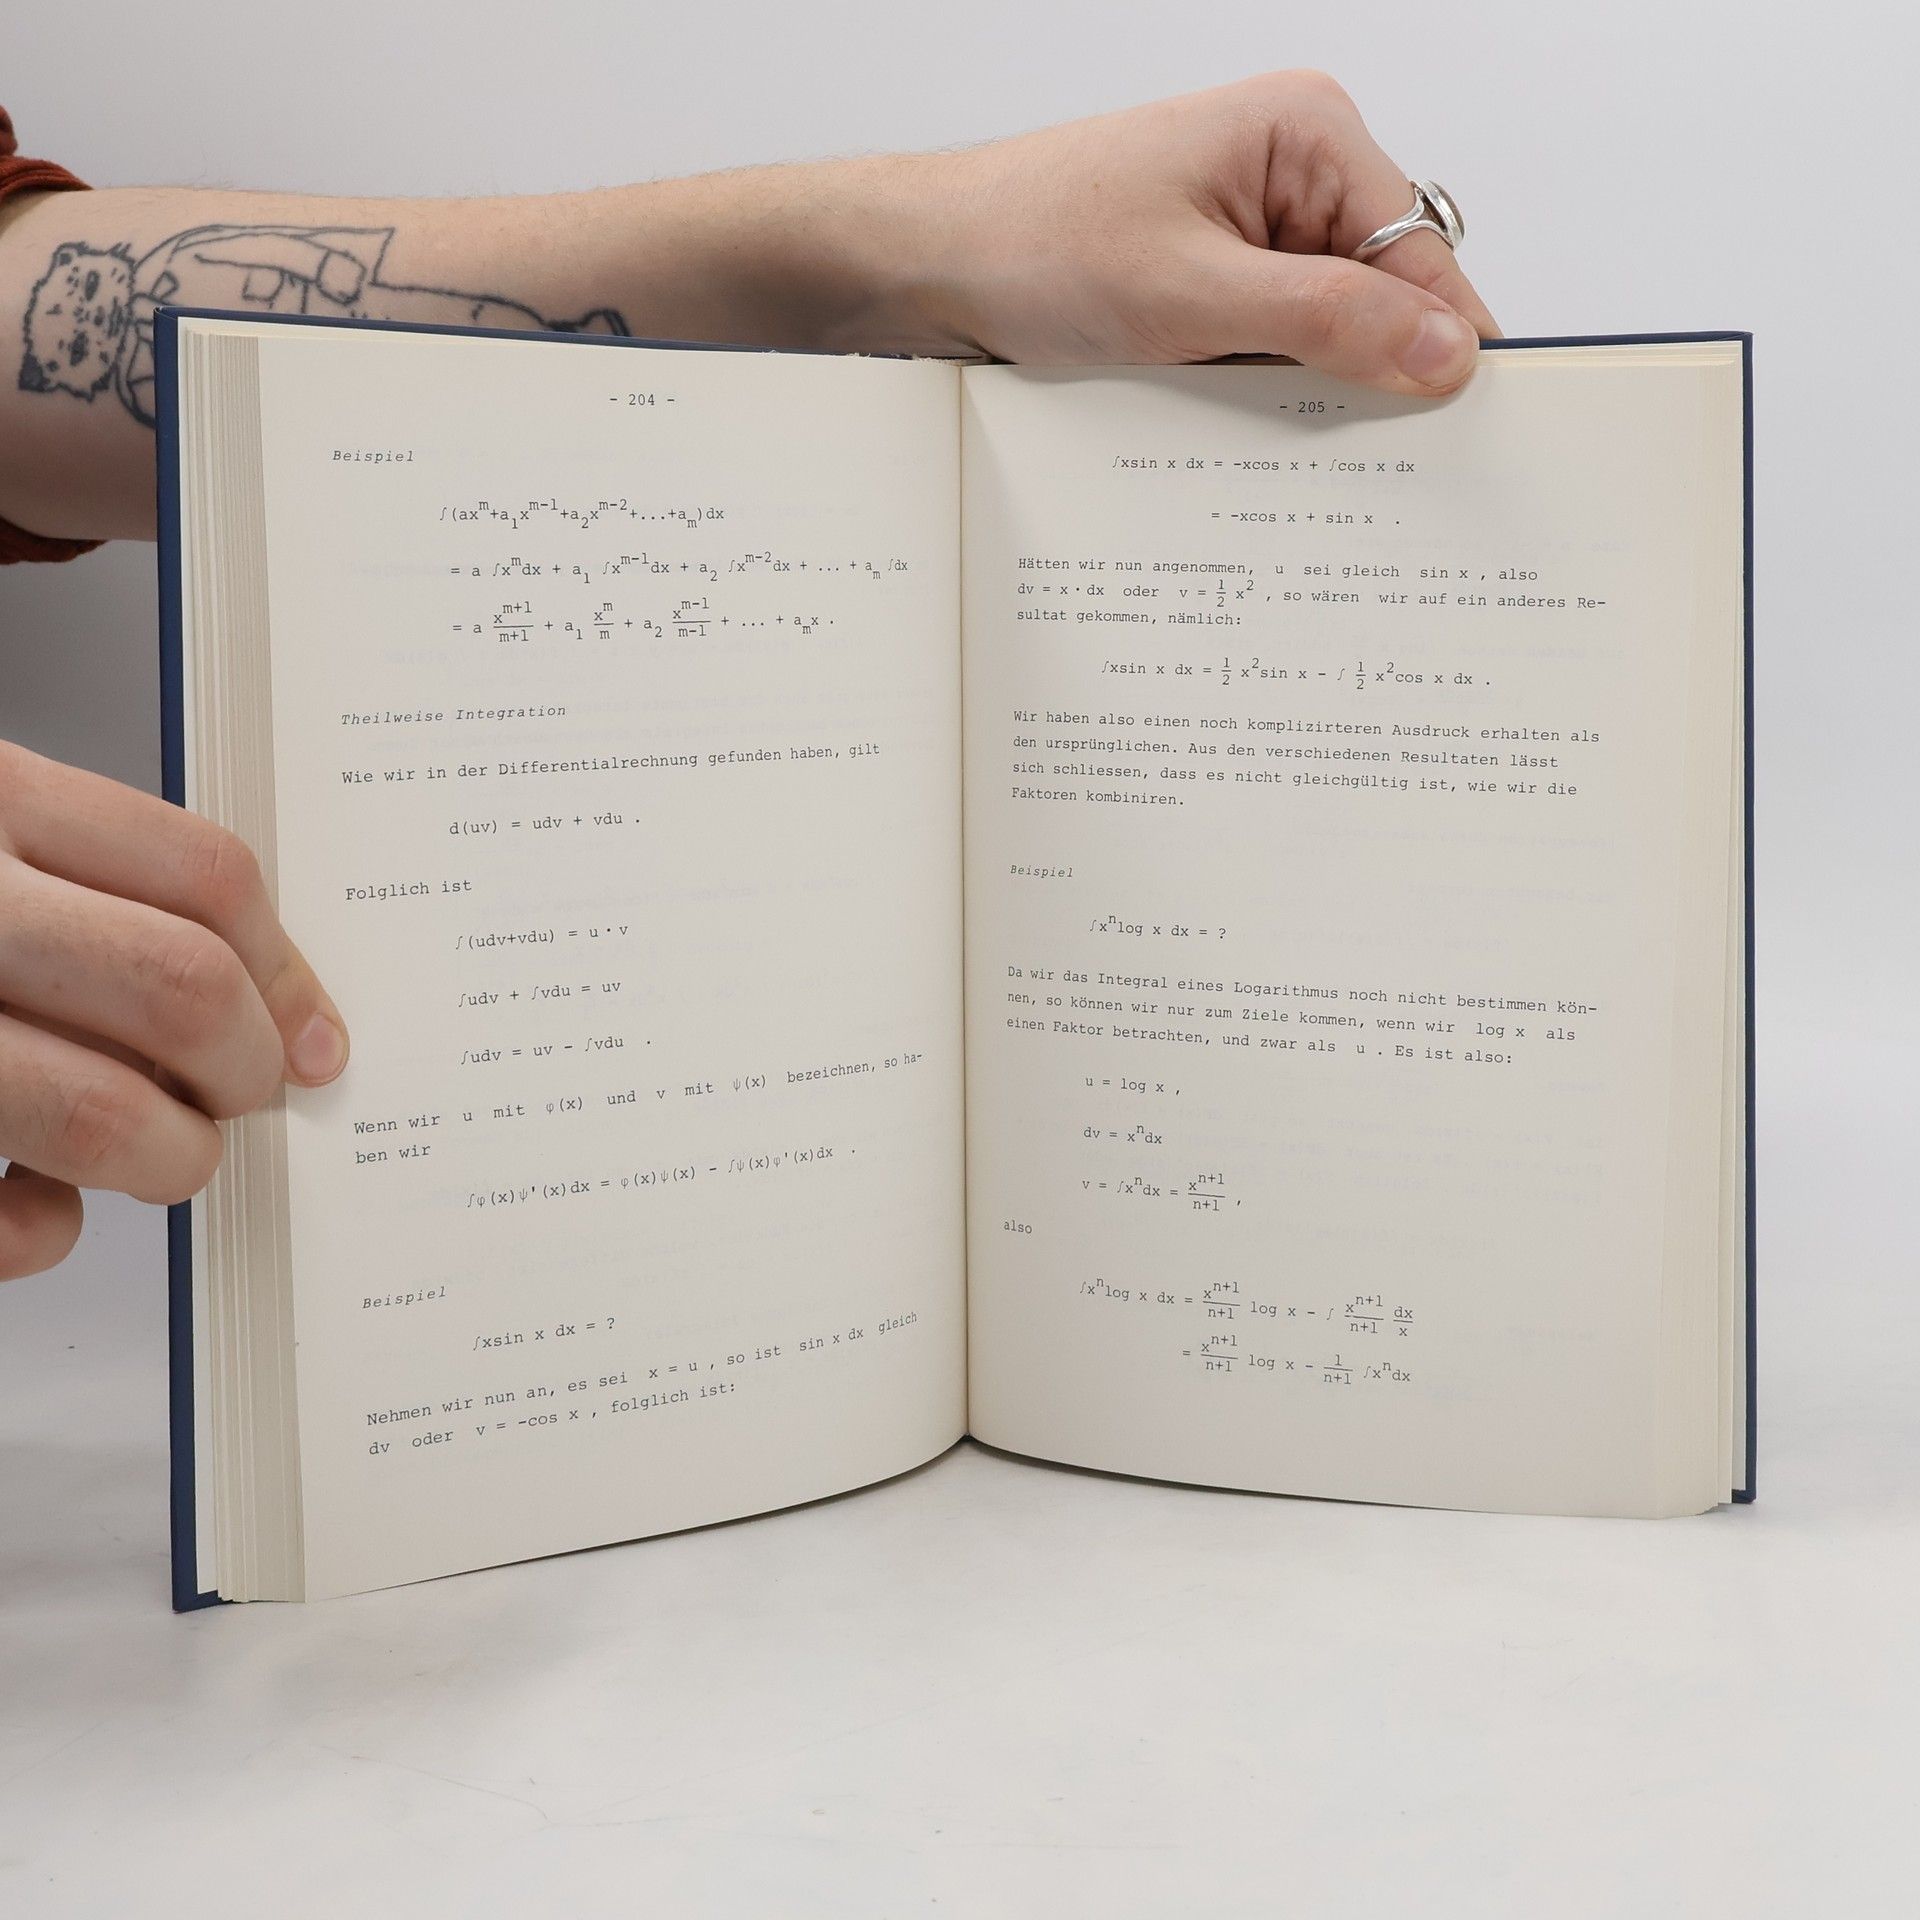 - 204 -
Beispiel
∫(ax^m+a_1x^{m-1}+a_2x^{m-2}+...+a_m)dx
= a ∫x^mdx + a_1 ∫x^{m-1}dx + a_2 ∫x^{m-2}dx + ... + a_m ∫dx
= a \frac{x^{m+1}}{m+1} + a_1 \frac{x^m}{m} + a_2 \frac{x^{m-1}}{m-1} + ... + a_mx .
Theilweise Integration
Wie wir in der Differentialrechnung gefunden haben, gilt
d(uv) = udv + vdu .
Folglich ist
∫(udv+vdu) = u·v
∫udv + ∫vdu = uv
∫udv = uv - ∫vdu .
Wenn wir u mit φ(x) und v mit ψ(x) bezeichnen, so ha-
ben wir
∫φ(x)ψ'(x)dx = φ(x)ψ(x) - ∫ψ(x)φ'(x)dx .
Beispiel
∫xsin x dx = ?
Nehmen wir nun an, es sei x = u , so ist sin x dx gleich
dv oder v = -cos x , folglich ist:
- 205 -
∫xsin x dx = -xcos x + ∫cos x dx
= -xcos x + sin x .
Hätten wir nun angenommen, u sei gleich sin x , also
dv = x·dx oder v = \frac{1}{2} x^2 , so wären wir auf ein anderes Re-
sultat gekommen, nämlich:
∫xsin x dx = \frac{1}{2} x^2sin x - ∫ \frac{1}{2} x^2cos x dx .
Wir haben also einen noch komplizirteren Ausdruck erhalten als
den ursprünglichen. Aus den verschiedenen Resultaten lässt
sich schliessen, dass es nicht gleichgültig ist, wie wir die
Faktoren kombiniren.
Beispiel
∫x^nlog x dx = ?
Da wir das Integral eines Logarithmus noch nicht bestimmen kön-
nen, so können wir nur zum Ziele kommen, wenn wir log x als
einen Faktor betrachten, und zwar als u . Es ist also:
u = log x ,
dv = x^ndx
v = ∫x^ndx = \frac{x^{n+1}}{n+1} ,
also
∫x^nlog x dx = \frac{x^{n+1}}{n+1} log x - ∫ \frac{x^{n+1}}{n+1} \frac{dx}{x}
= \frac{x^{n+1}}{n+1} log x - \frac{1}{n+1} ∫x^ndx